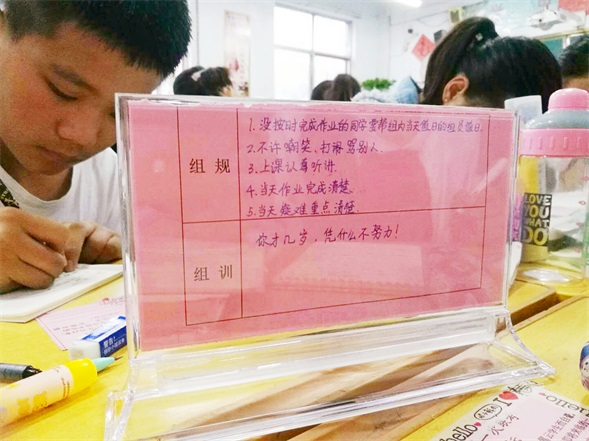 组规
1.没按时完成作业的同学需帮组内当天值日的组员值日.
2.不许嘲笑、打闹骂别人.
3.上课认真听讲.
4.当天作业完成清楚.
5.当天疑难重点清楚.
组训
你才几岁,凭什么不努力!
LOVE
YOU
WHAT
DO
hello.
I